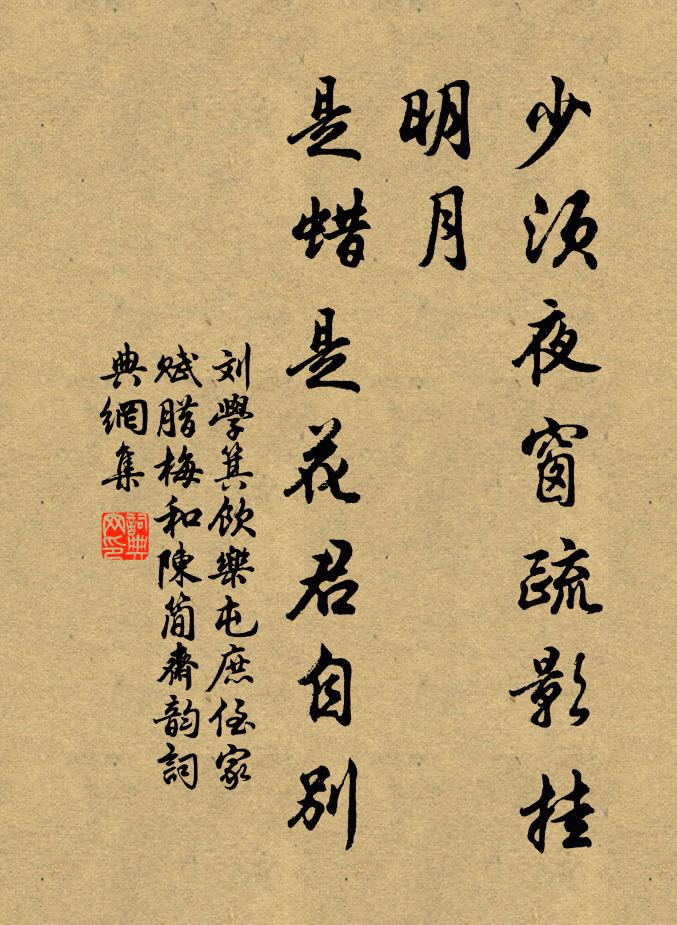 少須夜窗疏影挂
明月
是蜡是花君自別
刘學箕飲樂屯庶侄家
赋腊梅和陳簡齋韵詞
典網集
詞典网印